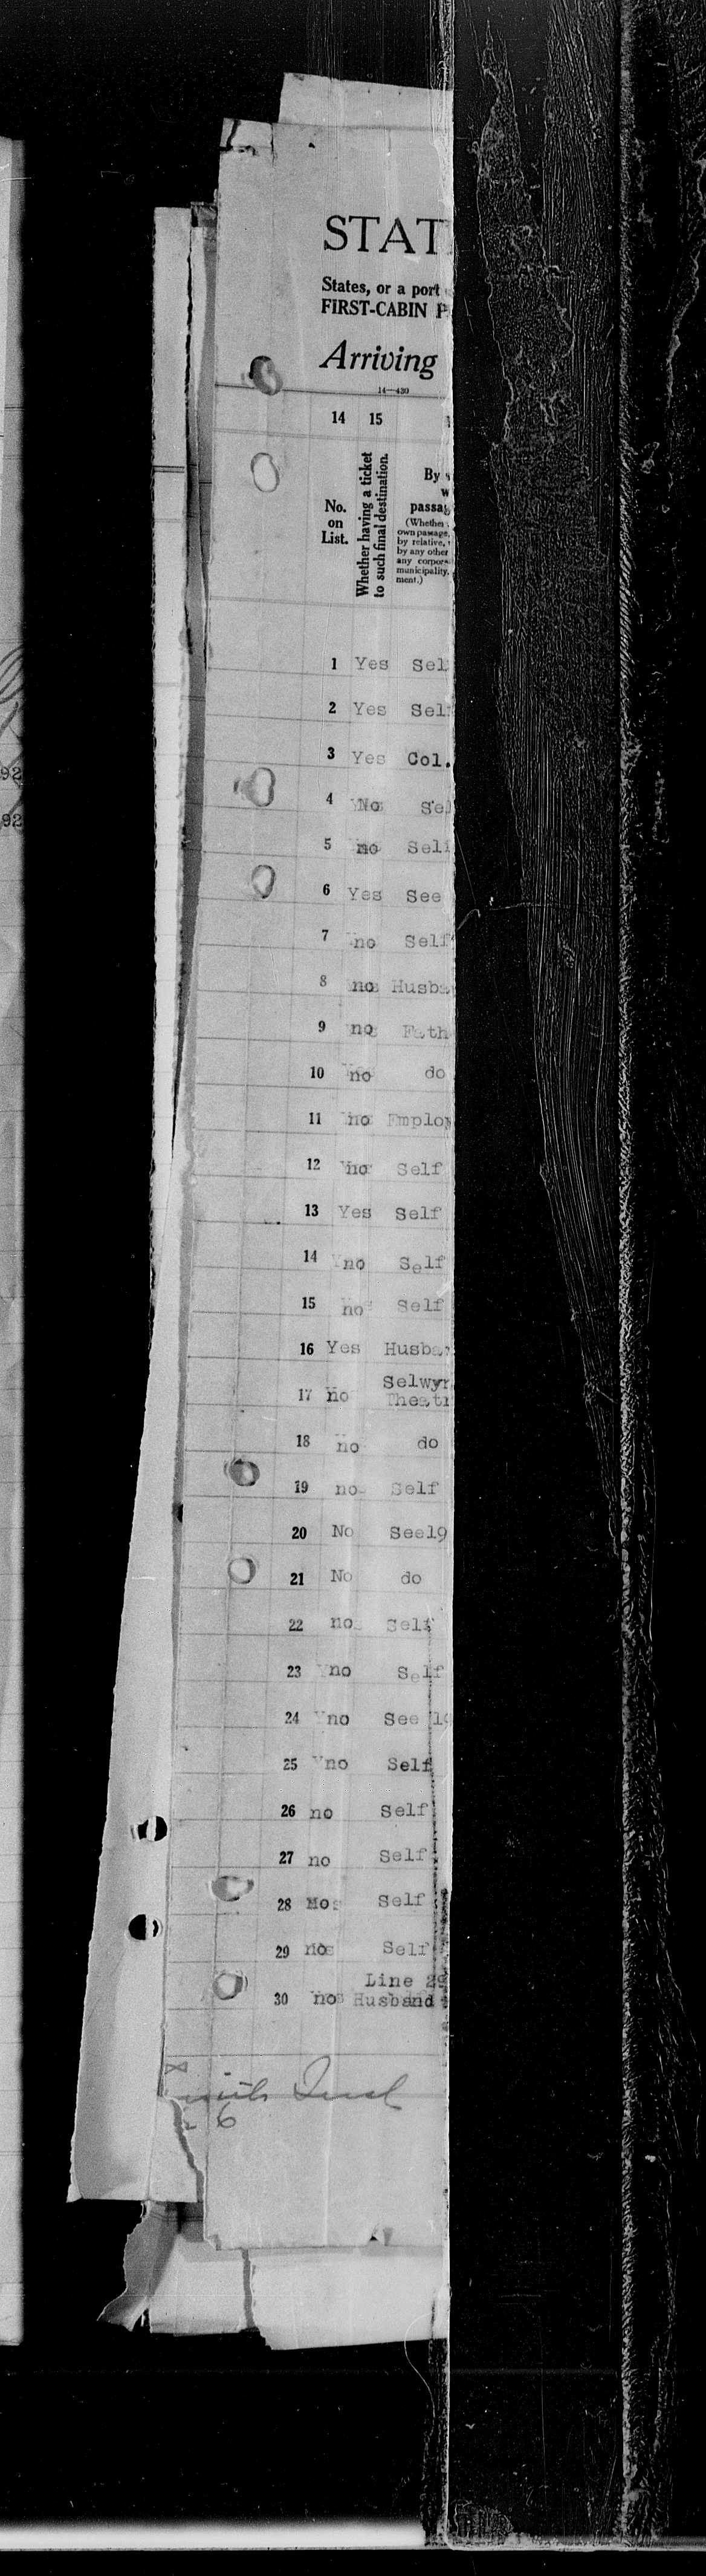 STAT
States, or a port
FIRST-CABIN P
Arriving
14—430
14 15
No. on List.
Whether having a ticket to such final destination.
By
w
passag
(Whether
own passage,
by relative,
by any other
any corpor
municipality,
ment.)
1 Yes Sel
2 Yes Sel
3 Yes Col.
4 No Sel
5 no Self
6 Yes See
7 no Self
8 no Husba
9 no Fath
10 no do
11 no Employ
12 no Self
13 Yes Self
14 no Self
15 no Self
16 Yes Husba
17 no Selwyn
Theatr
18 no do
19 no Self
20 No See19
21 No do
22 no Self
23 no Self
24 no See 19
25 no Self
26 no Self
27 no Self
28 No Self
29 no Self
30 no Line 29
Husband
6
92
92